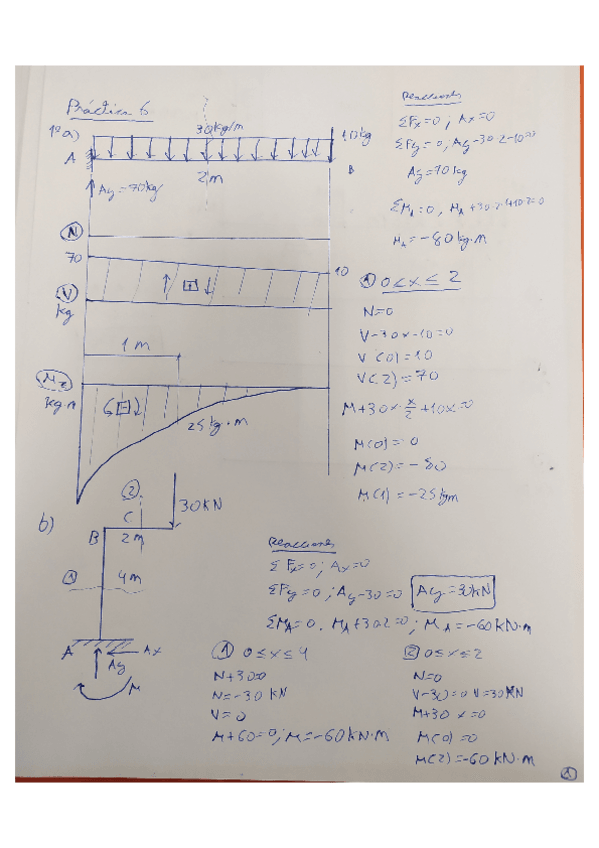 Práctica 6
1º a)
30 kg/m
10 kg
A
B
2 m
Ay = 70 kg
N
70
10
V
kg
1 m
Mz
kg·m
25 kg·m
Reacciones
ΣFx = 0 ; Ax = 0
ΣFy = 0 ; Ay - 30·2 - 10 = 0
Ay = 70 kg
ΣMA = 0 ,
MA = -80 kg·m
① 0 < x ≤ 2
N = 0
V - 30x - 10 = 0
V(0) = 10
V(2) = 70
M + 30x · x/2 + 10x = 0
M(0) = 0
M(2) = -80
M(1) = -25 kgm
b)
②
C
30 KN
B
2 m
①
4 m
A
Ax
Ay
M
Reacciones
ΣFx = 0 ; Ax = 0
ΣFy = 0 ; Ay - 30 = 0 Ay = 30 kN
ΣMA = 0 . MA + 30·2 = 0 ; MA = -60 kN·m
① 0 ≤ x ≤ 4
N + 30 = 0
N = -30 KN
V = 0
M + 60 = 0 ; M = -60 kN·m
② 0 ≤ x ≤ 2
N = 0
V - 30 = 0 V = 30 KN
M + 30 x = 0
M(0) = 0
M(2) = -60 kN·m
①